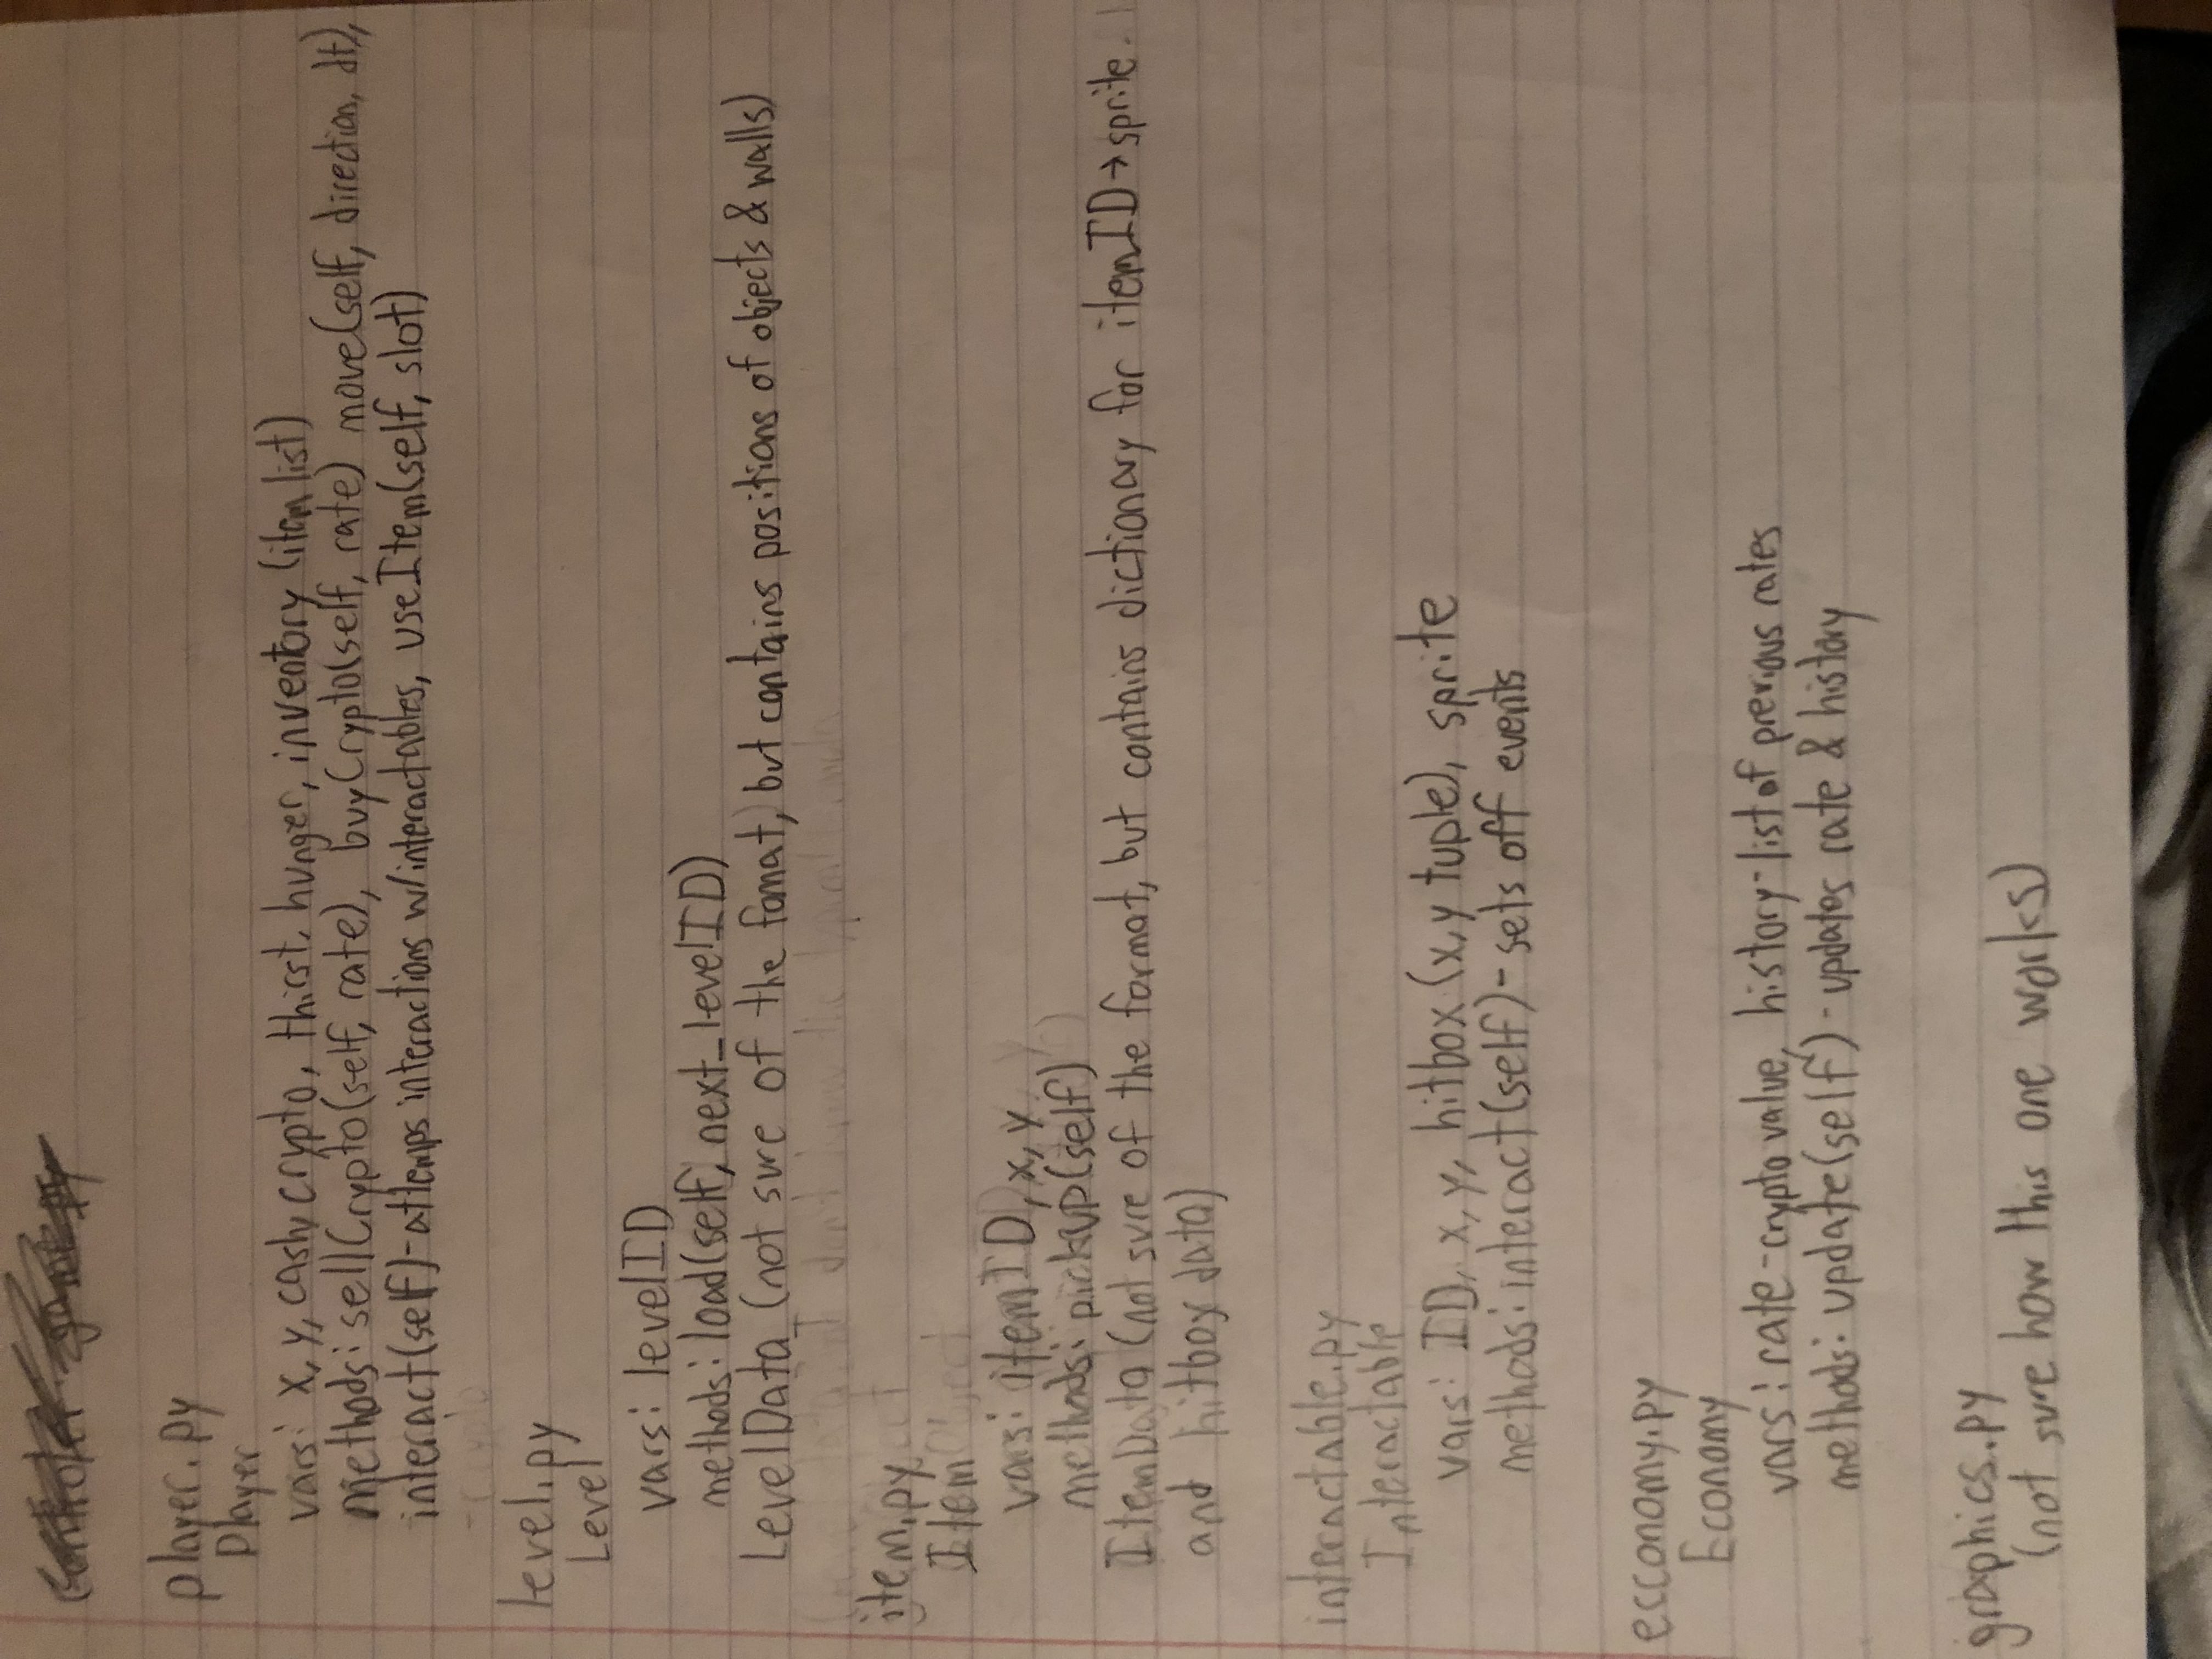 controler game.py
player.py
Player
vars: x, y, cash, crypto, thirst, hunger, inventory (item list)
methods: sellCrypto(self, rate), buyCrypto(self, rate) move(self, direction, dt),
interact(self)-attemps interactions w/interactables, useItem(self, slot)
-crypto
level.py
Level
vars: levelID
methods: load(self, next_levelID)
LevelData (not sure of the fomat, but contains positions of objects & walls)
data, don't know the
item.py
Item Object
vars: itemID, x, y
methods: pickup(self)
ItemData (not sure of the format, but contains dictionary for itemID→sprite
and hitbox data)
interactable.py
Interactable
vars: ID, x, y, hitbox (x,y tuple), sprite
methods: interact(self)-sets off events
ecconomy.py
Economy
vars: rate-crypto value, history-list of previous rates
methods: update(self)-updates rate & history
graphics.py
(not sure how this one works)